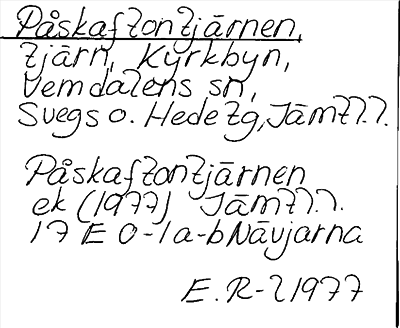 Påskaftontjärnen,
tjärn, Kyrkbyn,
Vemdalens sn,
Svegs o. Hede tg, Jämtl.l.
Påskaftontjärnen
ek (1977) Jämtl.l.
17 E 0-1 a-b Nävjarna
E.R-l 1977